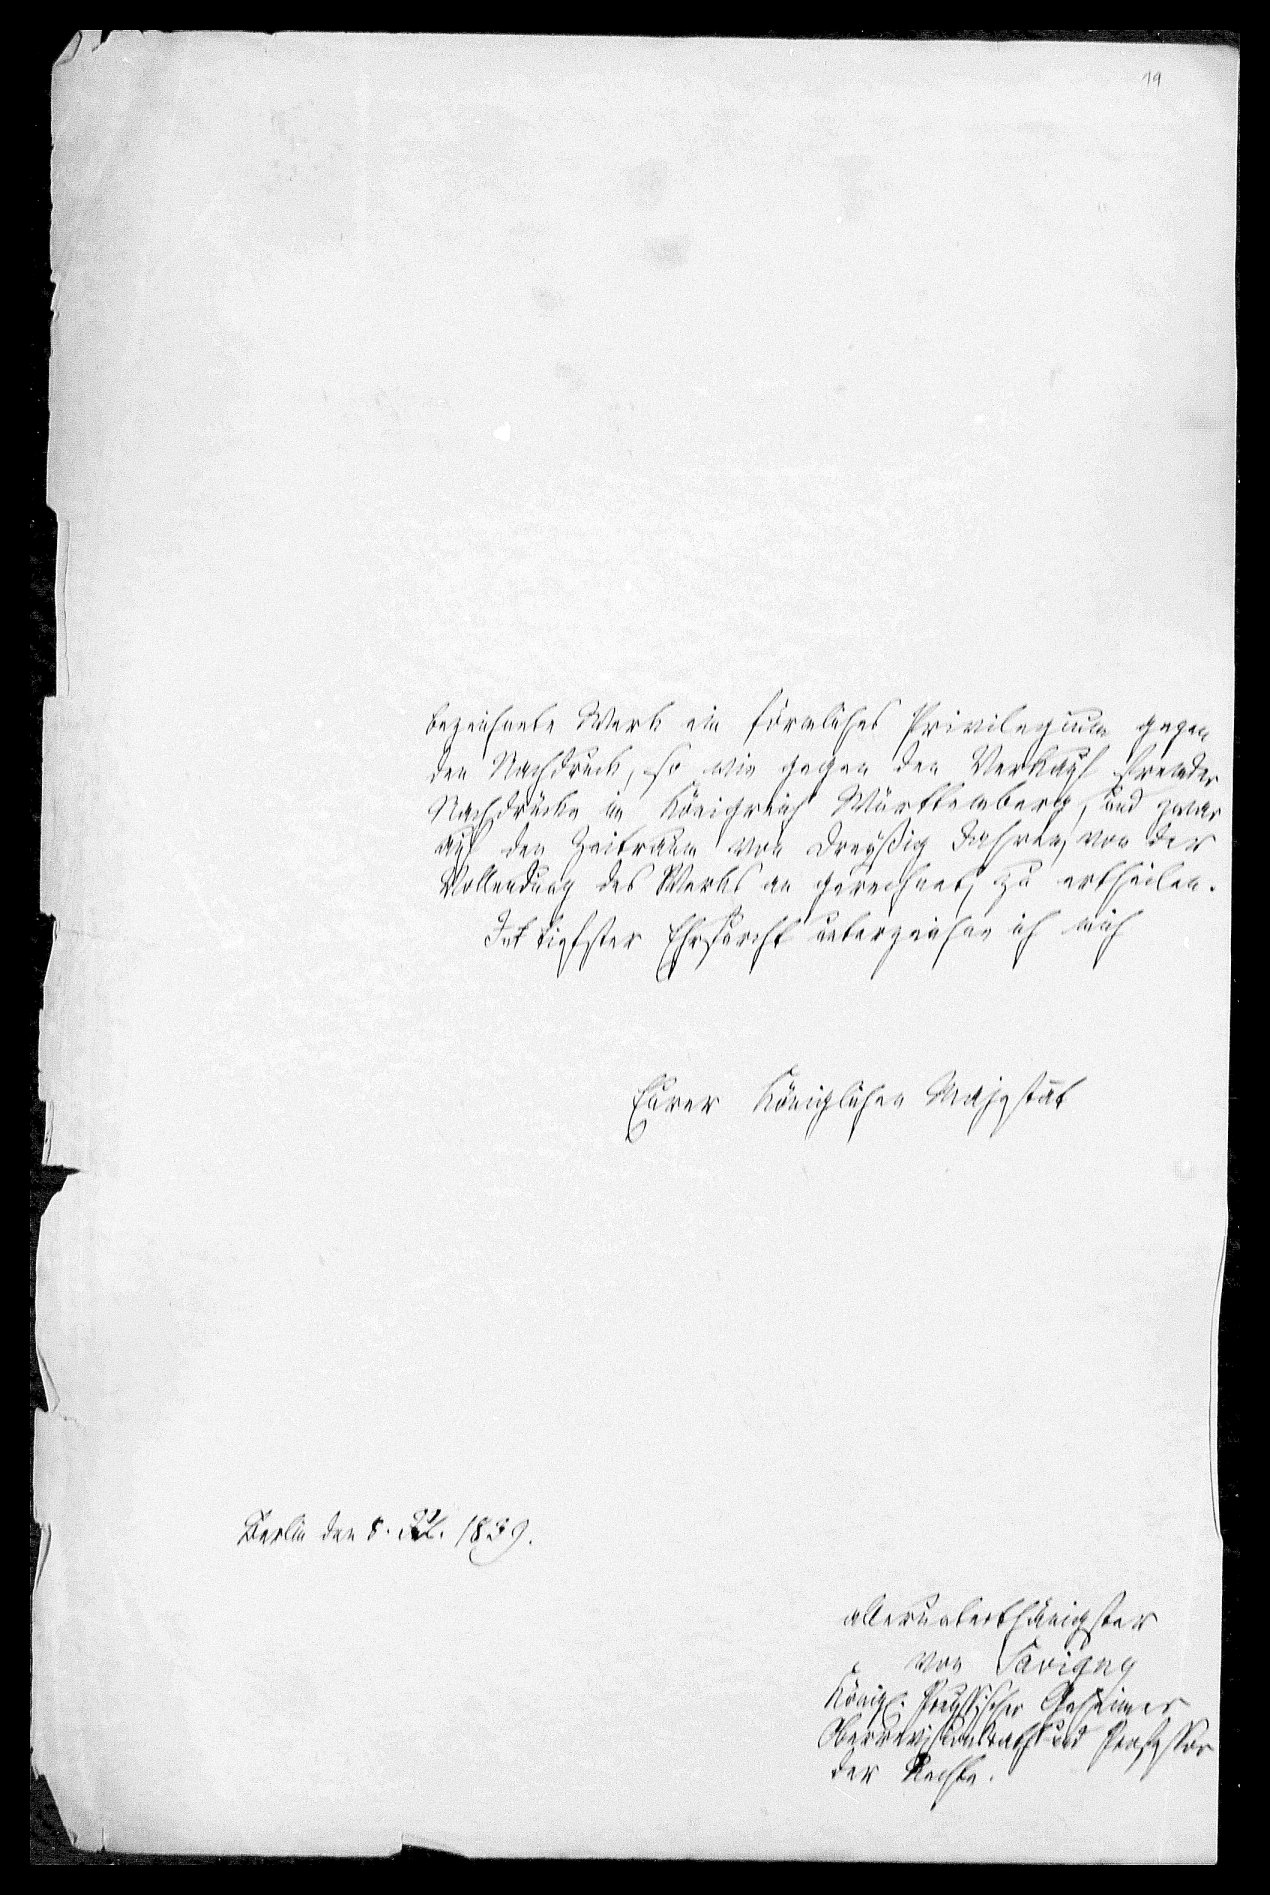 19
bezeichnete Werk ein förmliches Privilegium gegen
den Nachdruck, so wie gegen den Verkauf fremder
Nachdrücke im Königreich Württemberg, und zwar
auf den Zeitraum von dreyßig Jahren, von der
Vollendung des Werks an gerechnet, zu ertheilen.
In tiefster Ehrfurcht unterzeichne ich mich
Eurer Königlichen Majestät
Berlin den 8. 1839.
allerunterthänigster
von Savigny
Königl. Preußischer Geheimer
Oberrevisionsrath und Professor
der Rechte.